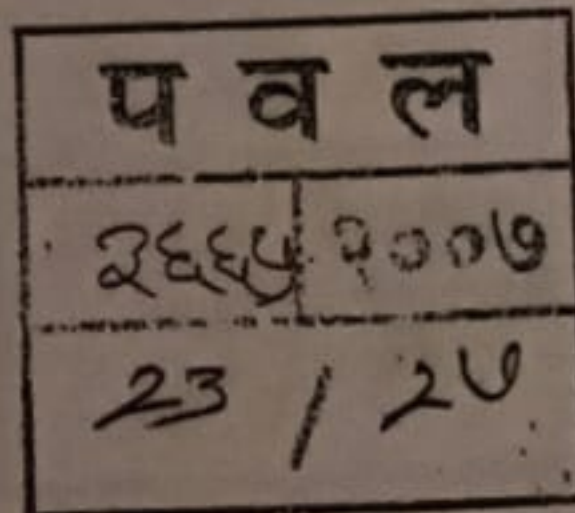 प व ल
३६६५ २००७
23 / २७